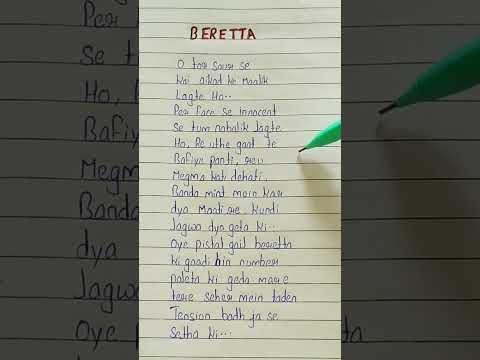 BERETTA
O tor saur se
Koi aikad ke maalik
Lagte Ho..
Per face se innocent
Se tum nabalik lagte
Ho, Re uthe gaat te
Bafiya panti,
Megma kati dehati,
Banda mint mein kar
dya Maadi re kundi
Jagwa dya geta ki..
Oye pistal gail beretta
ki gaadi hin number
paleta ki geda mare
tere seher mein taden
Tension badh ja se
Setha ki...